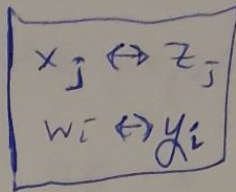 x_j ↔ z_j
w_i ↔ y_i